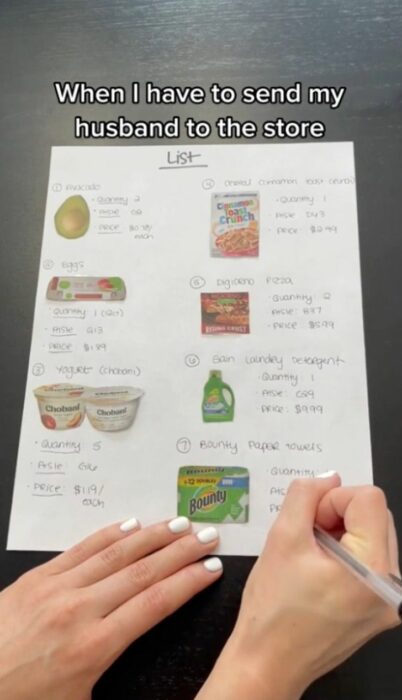 When I have to send my
husband to the store
List
① Avocado
• Quantity 2
• Aisle
• Price $0.78/
each
② Eggs
• Quantity 1 (12ct)
• Aisle G13
• Price $1.89
③ Yogurt (Chobani)
Chobani
Chobani
• Quantity 5
• Aisle G16
• Price: $1.19/
each
④ Cinnamon Toast Crunch
Cinnamon
Toast
Crunch
• Quantity 1
• Aisle D43
• Price $2.99
⑤ Digiorno Pizza
RISING CRUST
• Quantity: 2
• Aisle: B37
• Price $5.99
⑥ Gain Laundry Detergent
• Quantity 1
• Aisle: C29
• Price: $9.99
⑦ Bounty Paper Towels
Bounty
Bounty
• Quantity: